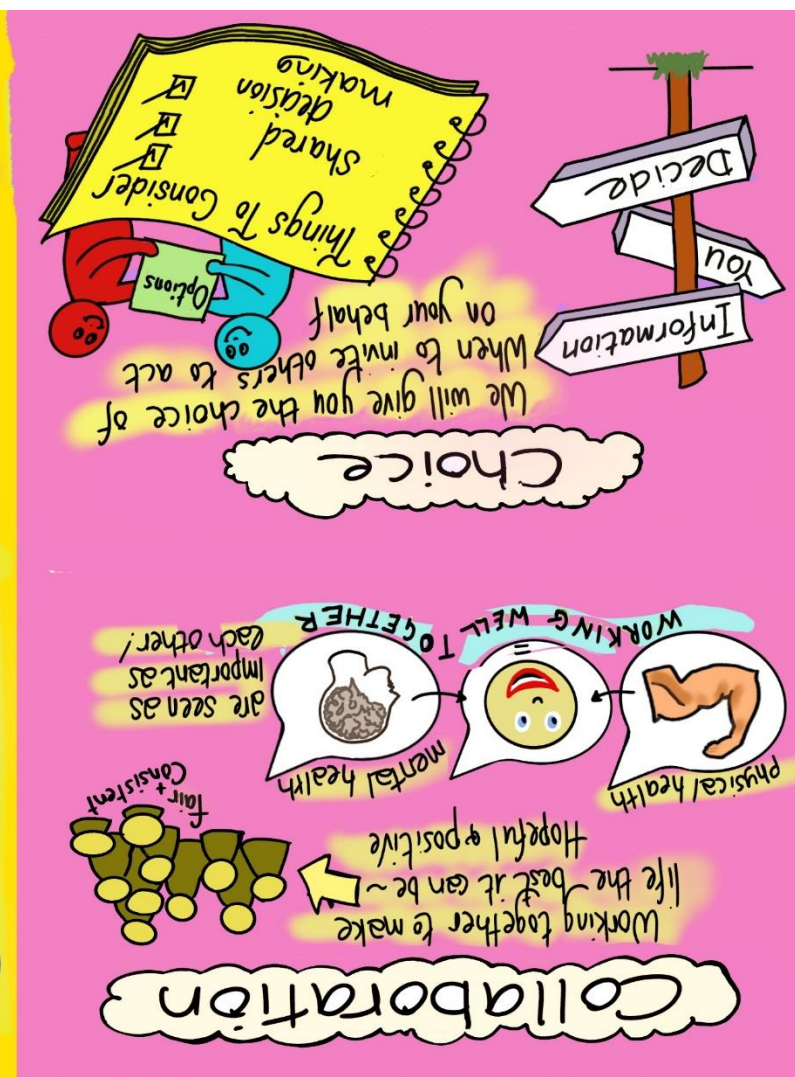 Collaboration
Working together to make
life the best it can be ~
Hopeful & positive
fair +
Consistent
physical health
mental health
are seen as
important as
each other!
=
WORKING WELL TOGETHER
Choice
We will give you the choice of
When to invite others to act
On your behalf
Information
You
Decide
Options
Things To Consider
Shared
decision
making